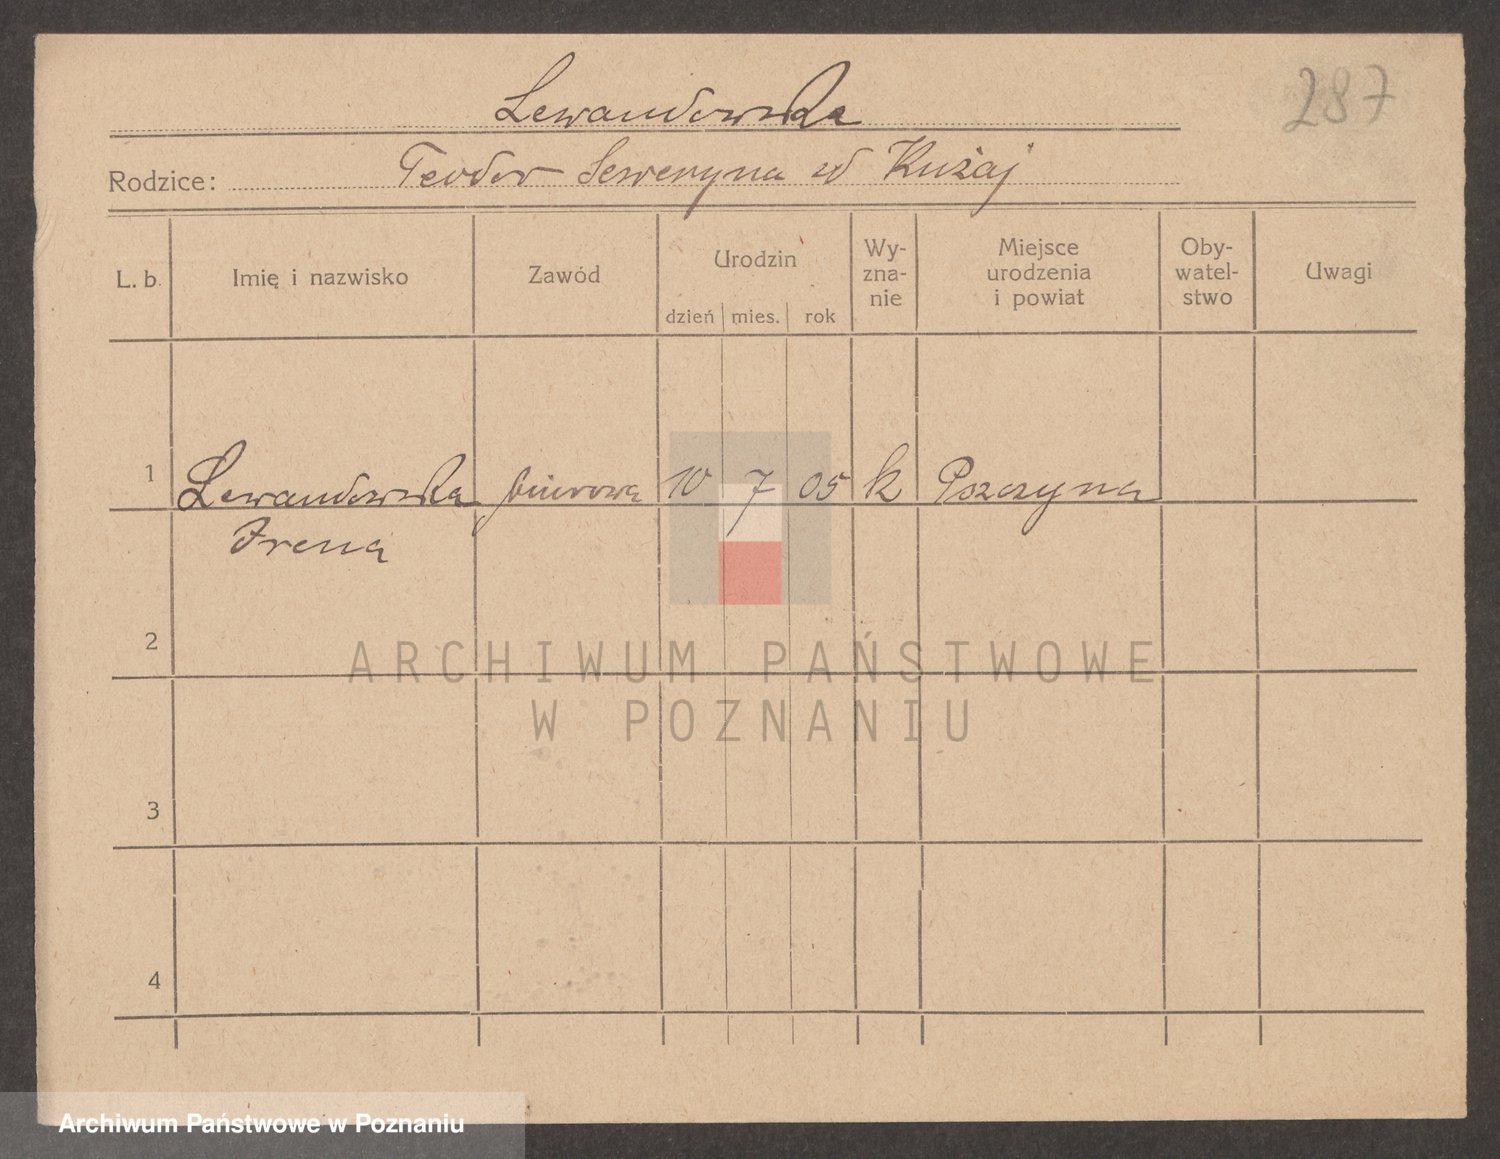 Lewandowska
287
Rodzice: Teodor Seweryna zd Kużaj
L. b. Imię i nazwisko Zawód Urodzin Wy-zna-nie Miejsce urodzenia i powiat Oby-watel-stwo Uwagi
dzień mies. rok
1 Lewandowska biurowa 10 7 05 k Pszczyna
Irena
2
ARCHIWUM PAŃSTWOWE
W POZNANIU
3
4
Archiwum Państwowe w Poznaniu